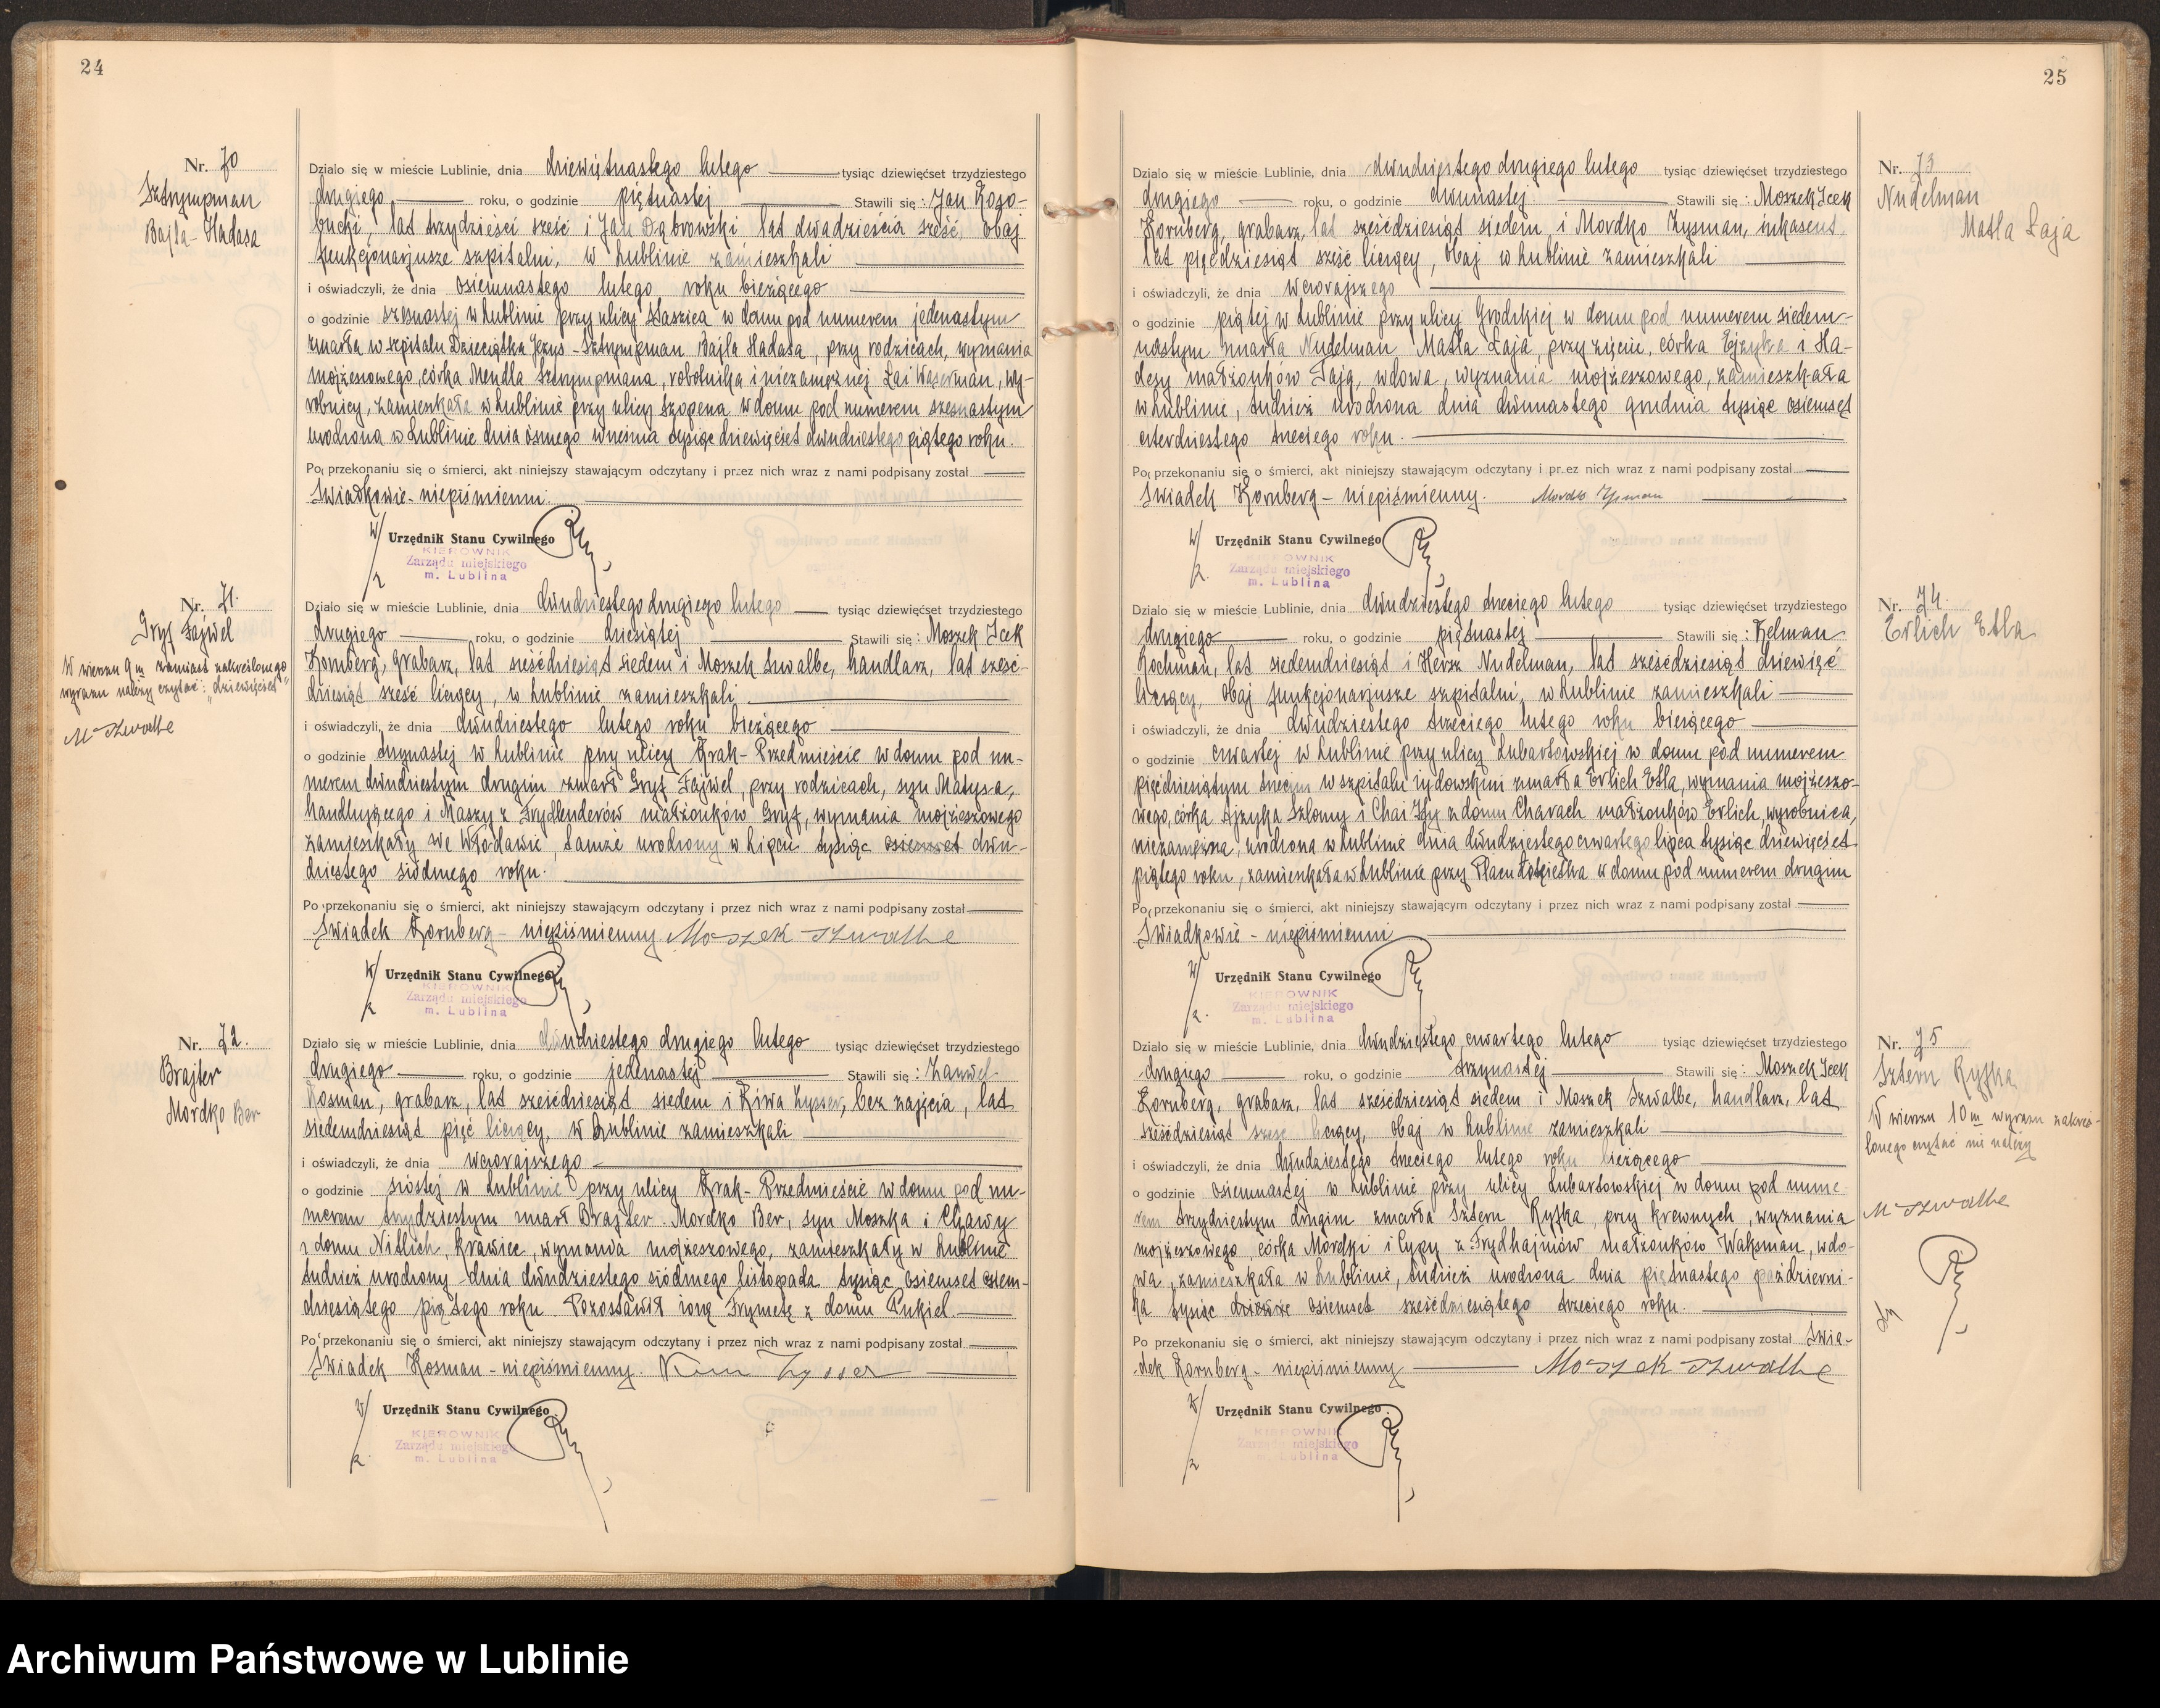 24
Nr. 70
Sztrympman
Bajla-Hadasa
Działo się w mieście Lublinie, dnia dziewiętnastego lutego tysiąc dziewięćset trzydziestego
drugiego roku, o godzinie piętnastej Stawili się: Jan Koso-
bucki, lat trzydzieści sześć i Jan Dąbrowski lat dwadzieścia sześć, obaj
funkcjonarjusze szpitalni, w Lublinie zamieszkali
i oświadczyli, że dnia osiemnastego lutego roku bieżącego
o godzinie szesnastej w Lublinie przy ulicy Staszica w domu pod numerem jedenastym
zmarła w szpitalu Dzieciątka Jezus - Sztrympman Bajla Hadasa, przy rodzicach, wyznania
mojżeszowego, córka Mendla Sztrympmana, robotnika i niezamężnej Łai Waserman, wy-
robnicy, zamieszkała w Lublinie przy ulicy Szopena w domu pod numerem szesnastym
urodzona w Lublinie dnia ósmego września tysiąc dziewięćset dwudziestego piątego roku.
Po przekonaniu się o śmierci, akt niniejszy stawającym odczytany i przez nich wraz z nami podpisany został
Świadkowie - niepiśmienni.
Urzędnik Stanu Cywilnego
KIEROWNIK
Zarządu miejskiego
m. Lublina
Nr. 71.
Gryf Fajwel
W wierszu 9m zamiast zakreślonego
wyrazu należy czytać: "dziewięćset"
M Szwalbe
Działo się w mieście Lublinie, dnia dwudziestego drugiego lutego tysiąc dziewięćset trzydziestego
drugiego roku, o godzinie dziesiątej Stawili się: Moszek Icek
Kornberg, grabarz, lat sześćdziesiąt siedem i Moszek Szwalbe, handlarz, lat sześć-
dziesiąt sześć liczący, w Lublinie zamieszkali
i oświadczyli, że dnia dwudziestego lutego roku bieżącego
o godzinie trzynastej w Lublinie przy ulicy Krak-Przedmieście w domu pod nu-
merem dwudziestym drugim zmarł Gryf Fajwel, przy rodzicach, syn Matysa,
handlującego i Maszy z Frydlenderów małżonków Gryf, wyznania mojżeszowego
zamieszkały we Włodawie, tamże urodzony w lipcu tysiąc osiemset dwu-
dziestego siódmego roku.
Po przekonaniu się o śmierci, akt niniejszy stawającym odczytany i przez nich wraz z nami podpisany został
Świadek Kornberg - niepiśmienny Moszek Szwalbe
Urzędnik Stanu Cywilnego
KIEROWNIK
Zarządu miejskiego
m. Lublina
Nr. 72.
Brajter
Mordko Ber
Działo się w mieście Lublinie, dnia dwudziestego drugiego lutego tysiąc dziewięćset trzydziestego
drugiego roku, o godzinie jedenastej Stawili się: Zanwel
Kosman, grabarz, lat sześćdziesiąt siedem i Kiwa Zysser, bez zajęcia, lat
siedemdziesiąt pięć liczący, w Lublinie zamieszkali
i oświadczyli, że dnia wczorajszego
o godzinie szóstej w Lublinie przy ulicy Krak-Przedmieście w domu pod nu-
merem trzydziestym zmarł Brajter Mordko Ber, syn Moszka i Chawy
z domu Nitlich, krawiec, wyznania mojżeszowego, zamieszkały w Lublinie
tudzież urodzony dnia dwudziestego siódmego listopada tysiąc osiemset osiem-
dziesiątego piątego roku. Pozostawił żonę Frymetę z domu Cukiel.
Po przekonaniu się o śmierci, akt niniejszy stawającym odczytany i przez nich wraz z nami podpisany został
Świadek Kosman - niepiśmienny. Zysser
Urzędnik Stanu Cywilnego
KIEROWNIK
Zarządu miejskiego
m. Lublina
25
Nr. 73
Nudelman
Matla Łaja
Działo się w mieście Lublinie, dnia dwudziestego drugiego lutego tysiąc dziewięćset trzydziestego
drugiego roku, o godzinie dwunastej Stawili się: Moszek Icek
Kornberg, grabarz, lat sześćdziesiąt siedem i Mordko Zysman, inkasent,
lat pięćdziesiąt sześć liczący, obaj w Lublinie zamieszkali
i oświadczyli, że dnia wczorajszego
o godzinie piątej w Lublinie przy ulicy Grodzkiej w domu pod numerem siedem-
nastym zmarła Nudelman Matla Łaja, przy zięcie, córka Ejzyka i Ha-
desy małżonków Tajg, wdowa, wyznania mojżeszowego, zamieszkała
w Lublinie, tudzież urodzona dnia dwunastego grudnia tysiąc osiemset
czterdziestego trzeciego roku.
Po przekonaniu się o śmierci, akt niniejszy stawającym odczytany i przez nich wraz z nami podpisany został
Świadek Kornberg - niepiśmienny. Mordko Zysman
Urzędnik Stanu Cywilnego
KIEROWNIK
Zarządu miejskiego
m. Lublina
Nr. 74.
Erlich Etla
Działo się w mieście Lublinie, dnia dwudziestego trzeciego lutego tysiąc dziewięćset trzydziestego
drugiego roku, o godzinie piętnastej Stawili się: Kelman
Kochman, lat siedemdziesiąt i Hersz Nudelman, lat sześćdziesiąt dziewięć
liczący, obaj funkcjonarjusze szpitalni, w Lublinie zamieszkali
i oświadczyli, że dnia dwudziestego trzeciego lutego roku bieżącego
o godzinie czwartej w Lublinie przy ulicy Lubartowskiej w domu pod numerem
pięćdziesiątym trzecim w szpitalu żydowskim zmarła Erlich Etla, wyznania mojżeszo-
wego, córka Ajzyka Szlomy i Chai Ity z domu Charach małżonków Erlich, wyrobnica,
niezamężna, urodzona w Lublinie dnia dwudziestego czwartego lipca tysiąc dziewięćset
piątego roku, zamieszkała w Lublinie przy Placu Łokietka w domu pod numerem drugim
Po przekonaniu się o śmierci, akt niniejszy stawającym odczytany i przez nich wraz z nami podpisany został
Świadkowie - niepiśmienni
Urzędnik Stanu Cywilnego
KIEROWNIK
Zarządu miejskiego
m. Lublina
Nr. 75
Sztern Ryfka
W wierszu 10m wyrazu zakreś-
lonego czytać nie należy
M Szwalbe
Działo się w mieście Lublinie, dnia dwudziestego czwartego lutego tysiąc dziewięćset trzydziestego
drugiego roku, o godzinie trzynastej Stawili się: Moszek Icek
Kornberg, grabarz, lat sześćdziesiąt siedem i Moszek Szwalbe, handlarz, lat
sześćdziesiąt sześć liczący, obaj w Lublinie zamieszkali
i oświadczyli, że dnia dwudziestego trzeciego lutego roku bieżącego
o godzinie osiemnastej w Lublinie przy ulicy Lubartowskiej w domu pod nume
rem trzydziestym drugim zmarła Sztern Ryfka, przy krewnych, wyznania
mojżeszowego córka Mordki i Cypy z Frydhajmów małżonków Waksman, wdo-
wa, zamieszkała w Lublinie, tudzież urodzona dnia piętnastego październi-
ka tysiąc osiemset sześćdziesiątego trzeciego roku.
Po przekonaniu się o śmierci, akt niniejszy stawającym odczytany i przez nich wraz z nami podpisany został Świa-
dek Kornberg - niepiśmienny Moszek Szwalbe
Urzędnik Stanu Cywilnego
KIEROWNIK
Zarządu miejskiego
m. Lublina
Archiwum Państwowe w Lublinie